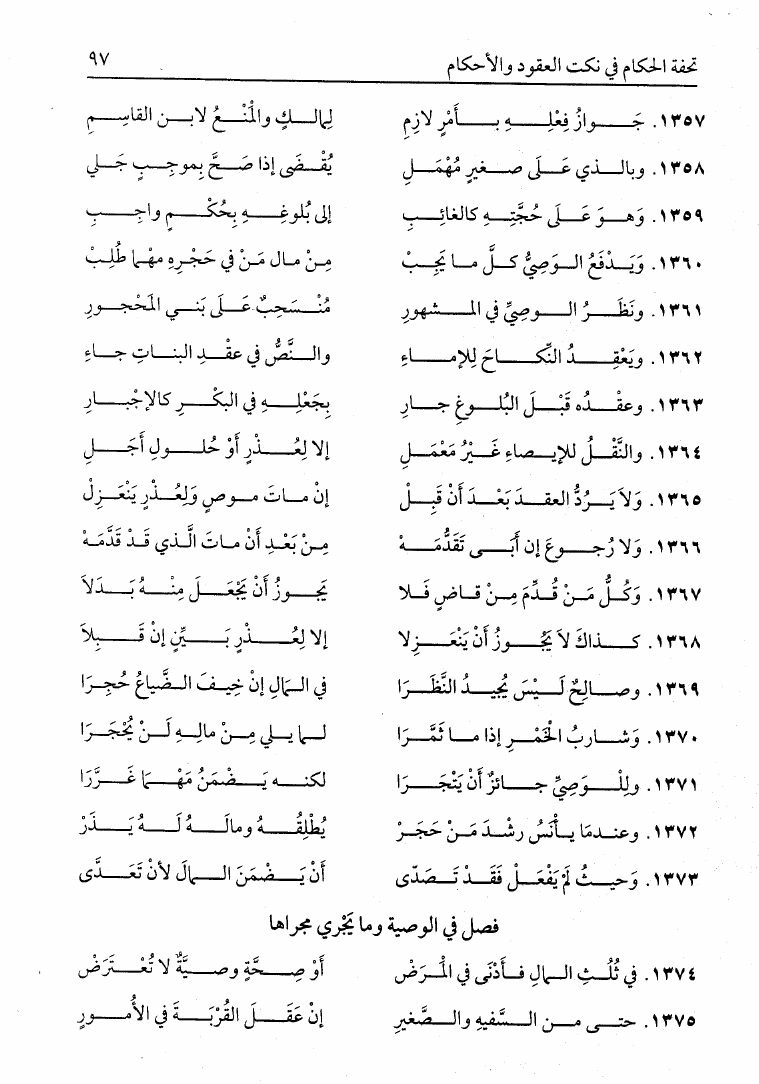 تحفة الحكام في نكت العقود والأحكام ٩٧
١٣٥٧. جَوازُ فِعْلِهِ بأَمْرٍ لازِمِ لِمالكٍ والْمَنْعُ لابنِ القاسِمِ
١٣٥٨. وبالذي عَلَى صغيرٍ مُهْمَلِ يُقْضَى إذا صَحَّ بموجِبٍ جَلي
١٣٥٩. وَهوَ عَلَى حُجَّتِهِ كالغائبِ إلى بُلوغِهِ بِحُكْمٍ واجِبِ
١٣٦٠. وَيَدْفَعُ الوَصِيُّ كلَّ ما يَجِبْ مِنْ مال مَنْ في حَجْرِهِ مهْما طُلِبْ
١٣٦١. ونَظَرُ الوصِيِّ في المشهورِ مُنْسَحِبٌ عَلَى بَني المَحْجورِ
١٣٦٢. ويَعْقِدُ النِّكاحَ لِلإماءِ والنَّصُّ في عقْدِ البناتِ جاءِ
١٣٦٣. وعقْدُه قَبْلَ البُلوغِ جارِ بجَعْلِهِ في البكْرِ كالإجْبارِ
١٣٦٤. والنَّقْلُ للإيصاءِ غَيْرُ مَعْمَلِ إلا لِعُذْرٍ أوْ حُلولِ أجَلِ
١٣٦٥. وَلاَ يَرُدُّ العقدَ بَعْدَ أنْ قَبِلْ إنْ ماتَ موصٍ وَلِعُذْرٍ يَنْعَزِلْ
١٣٦٦. ولا رُجوعَ إن أبَى تَقَدُّمَهْ مِنْ بَعْدِ أنْ ماتَ الَّذي قَدْ قَدَّمَهْ
١٣٦٧. وَكُلُّ مَنْ قُدِّمَ مِنْ قاضٍ فَلا يَجوزُ أنْ يَجْعَلَ مِنْهُ بَدَلاَ
١٣٦٨. كذاكَ لاَ يَجُوزُ أنْ يَنْعَزِلا إلا لِعُذْرٍ بَيِّنٍ إنْ قَبِلاَ
١٣٦٩. وصالِحٌ لَيْسَ يُجيدُ النَّظَرَا في المَالِ إنْ خِيفَ الضَّياعُ حُجِرَا
١٣٧٠. وَشاربُ الخَمْرِ إذا ما ثَمَّرَا لما يلي مِنْ مالِهِ لَنْ يُحْجَرَا
١٣٧١. ولِلْوَصِيِّ جائزٌ أنْ يَتْجَرَا لكنه يَضْمَنُ مَهْمَا غَرَّرَا
١٣٧٢. وعندمَا يأنَسُ رشْدَ مَنْ حَجَرْ يُطْلِقُهُ ومالَهُ لَهُ يَذَرْ
١٣٧٣. وَحيثُ لَمْ يَفْعَلْ فَقَدْ تَصَدّى أنْ يَضْمَنَ المالَ لأنْ تَعَدَّى
فصل في الوصية وما يَجْري مجراها
١٣٧٤. في ثُلُثِ المالِ فأدْنَى في المَرَضْ أوْ صِحَّةٍ وصيَّةٌ لا تُعْتَرَضْ
١٣٧٥. حتى من السَّفيهِ والصَّغيرِ إنْ عَقَلَ القُرْبَةَ في الأُمورِ